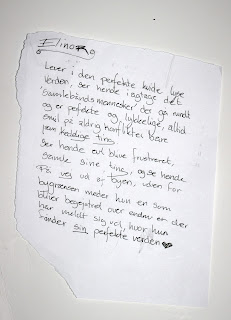 Elinor
Lever i den perfekte hvide lyse
verden, ser hende iagtage det
"samlebåndsmennesker" der gå rundt
og er perfekte og lykkelige, altid
smil på aldrig konflikter. Bare
hende
Ser hende evt blive frustreret,
samle sine ting, og se hende
På vej ud af byen, uden for
bygrænsen møder hun en som
bliver begejstret over endnu en der
har meldt sig ud, hvor hun
finder sin perfekte verden